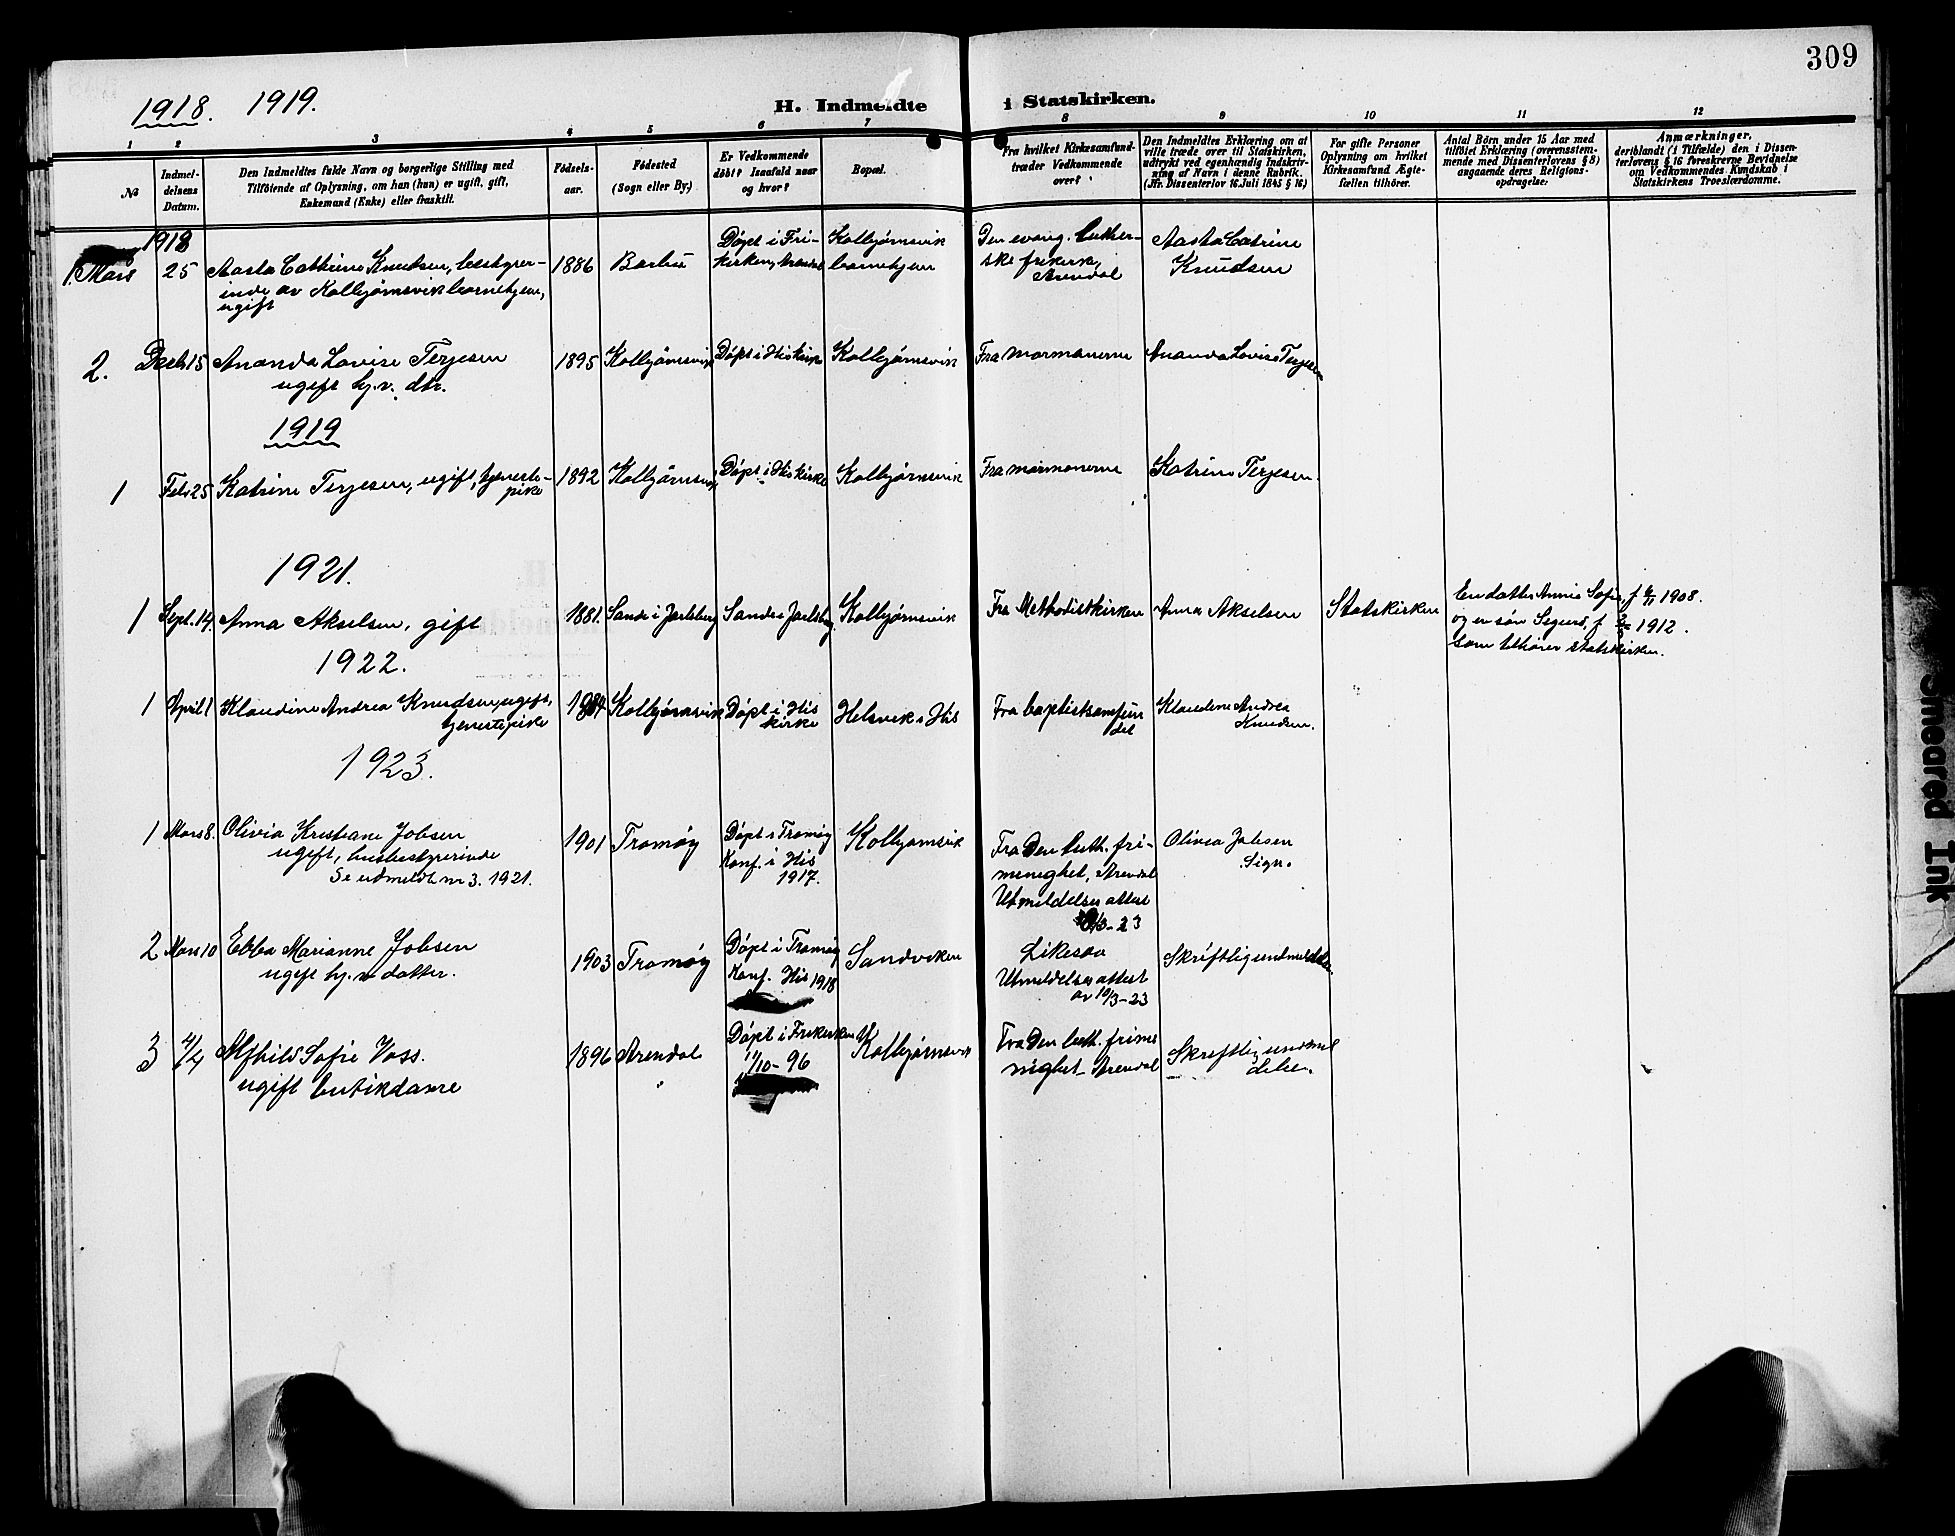 309
1918. 1919.
H. Indmeldte i Statskirken.
1 2 3 4 5 6 7 8 9 10 11 12
No
Indmel-
delsens
Datum.
Den Indmeldtes fulde Navn og borgerlige Stilling med
Tilföiende af Oplysning, om han (hun) er ugift, gift,
Enkemand (Enke) eller fraskilt.
Födsels-
aar.
Födested
(Sogn eller By).
Er Vedkommende
döbt? Isaafald naar
og hvor?
Bopæl.
Fra hvilket Kirkesamfund
træder Vedkommende
over?
Den Indmeldtes Erklæring om at
ville træde over til Statskirken,
udtrykt ved egenhændig Indskriv-
ning af Navn i denne Rubrik.
(Jfr. Dissenterlov 16. Juli 1845 § 16)
For gifte Personer
Oplysning om hvilket
Kirkesamfund Ægte-
fællen tilhörer.
Antal Börn under 15 Aar med
tilföiet Erklæring (overensstem-
mende med Dissenterlovens § 8)
angaaende deres Religions-
opdragelse.
Anmærkninger,
deriblandt (i Tilfælde) den i Dissen-
terlovens § 16 foreskrevne Bevidnelse
om Vedkommendes Kundskab i
Statskirkens Troeslærdomme.
1918
1. Mars 25
Aasta Cathrine Knudsen, bestyrer-
inde av Kolbjørnsvik barnehjem,
ugift
1886
Barbu
Døpt i Fri-
kirken, Arendal
Kolbjørnsvik
barnehjem
Den evang. luther-
ske frikirke,
Arendal
Aasta Catrine
Knudsen
2. Decb. 15
Ananda Lovise Terjesen
ugift hj.v. dtr.
1895
Kolbjørnsvik
Døpt i His kirke
Kolbjørnsvik
Fra mormonerne
Ananda Lovise Terjesen
1919
1 Feb 25
Katrine Terjesen, ugift, tjeneste-
pike
1892
Kolbjørnsvik
Døpt i His kirke
Kolbjørnsvik
Fra mormonerne
Katrine Terjesen.
1921.
1 Sept. 14.
Anna Akselsen, gift
1881.
Sande i Jarlsberg
Sande i Jarlsberg
Kolbjørnsvik
Fra Methodistkirken
Anna Akselsen
Statskirken
En datter Annie Sofie, f. 1908.
og en søn Sigurd, f. 1912.
som tilhører statskirken.
1922.
1 April 1
Klaudine Andrea Knudsen, ugift,
tjenestepike
Kolbjørnsvik
Døpt i His
kirke
Helsvik i His
Fra baptistsamfun
det
Klaudine Andrea
Knudsen.
1923.
1 Mars 8.
Olivia Kristiane Jobsen
ugift, husbestyrerinde
Se utmeldt nr 3. 1921.
1901
Tromøy
Døpt i Tromøy
Konf. i His
1917.
Kolbjørnsvik
Fra Den luth. fri-
menighet, Arendal
Utmeldelses attest
/3-23
Olivia Jobsen
Sign.
2 Mars 10
Ebba Marianne Jobsen
ugift hj.v datter.
1903
Tromøy
Døpt i Tromøy
Konf. His 1918
Sandviken
Likesaa
Utmeldelses attest
av 10/3-23
Skriftlig indmeldelse.
3 4/4
Alfhild Sofie Voss.
ugift butikdame
1896
Arendal
Døpt i Frikirken
11/10-96
Kolbjørnsvik
Fra Den luth. frime
nighet Arendal
Skriftlig indmel
delse.
Smeared Ink